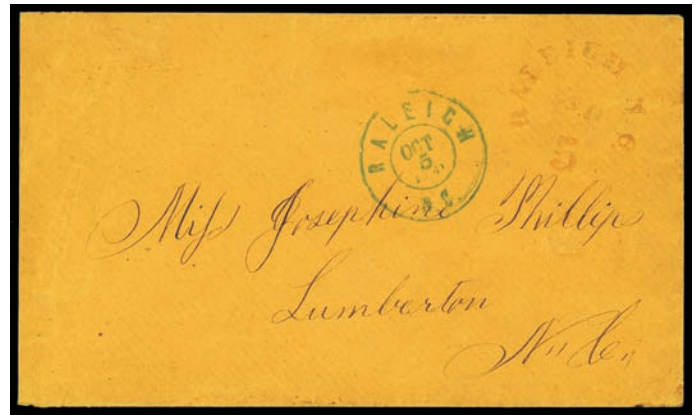 RALEIGH N.C.
RALEIGH
OCT
5
N.C.
Miss Josephine Phillips
Lumberton
N. C.